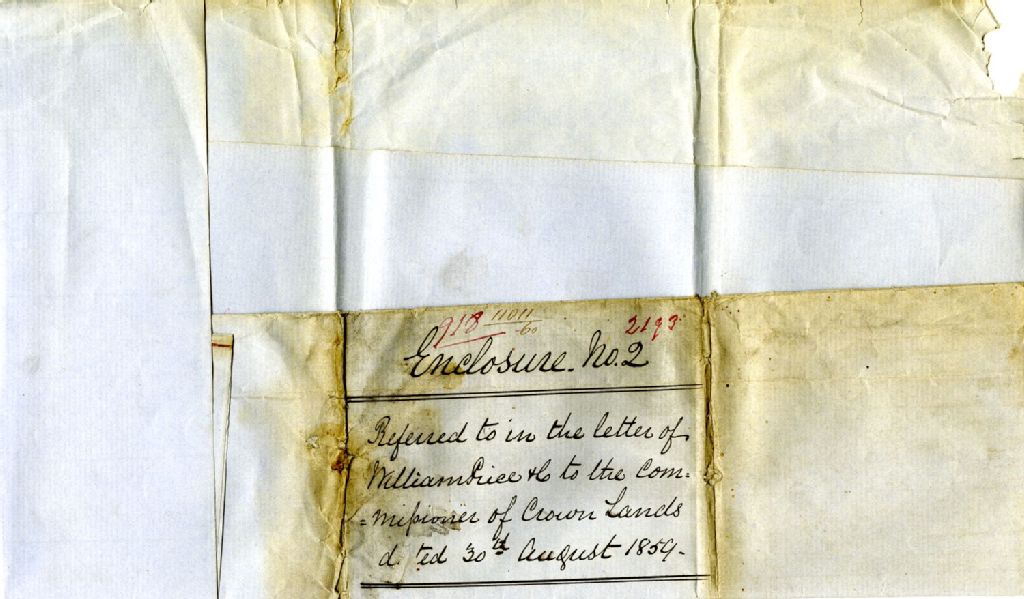 918 11011/60 2193
Enclosure. No. 2
Referred to in the letter of
William Price & C to the Com=
=missioner of Crown Lands
d ted 30th August 1859.